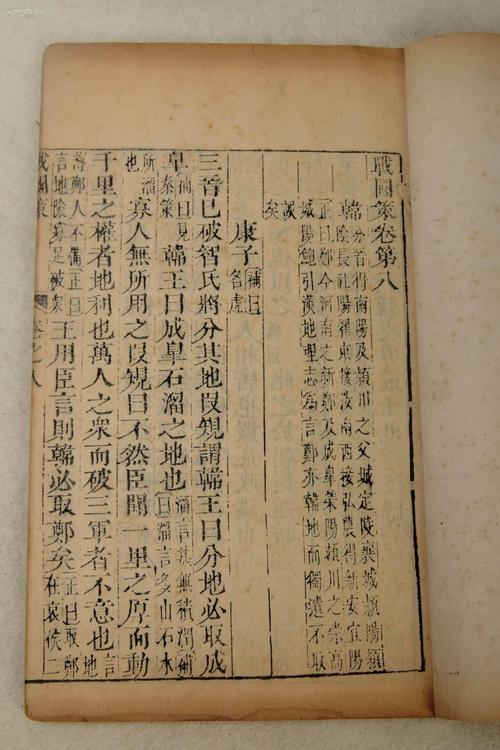 戰國策卷第八
韓分晉得南陽及潁川之父城定陵襄城潁陽潁
陰長社陽翟東接汝南西接弘農得新安宜陽
正曰鄭今河南之新鄭及成皐滎陽潁川之崇高
城陽鮑引漢地理志爲言鄭亦韓地而獨遺不取
誤
矣
康子補曰名虎
三晉已破智氏將分其地叚規謂韓王曰分地必取成
皐補曰見秦策韓王曰成皐石溜之地也溜言其無積潤補曰溜言多山石水
所溜也寡人無所用之叚規曰不然臣聞一里之厚而動
千里之權者地利也萬人之衆而破三軍者不意也言地
鄭人不備正曰言地險寡足破衆王用臣言則韓必取鄭矣正曰取鄭在哀侯二
戰國策 卷之八